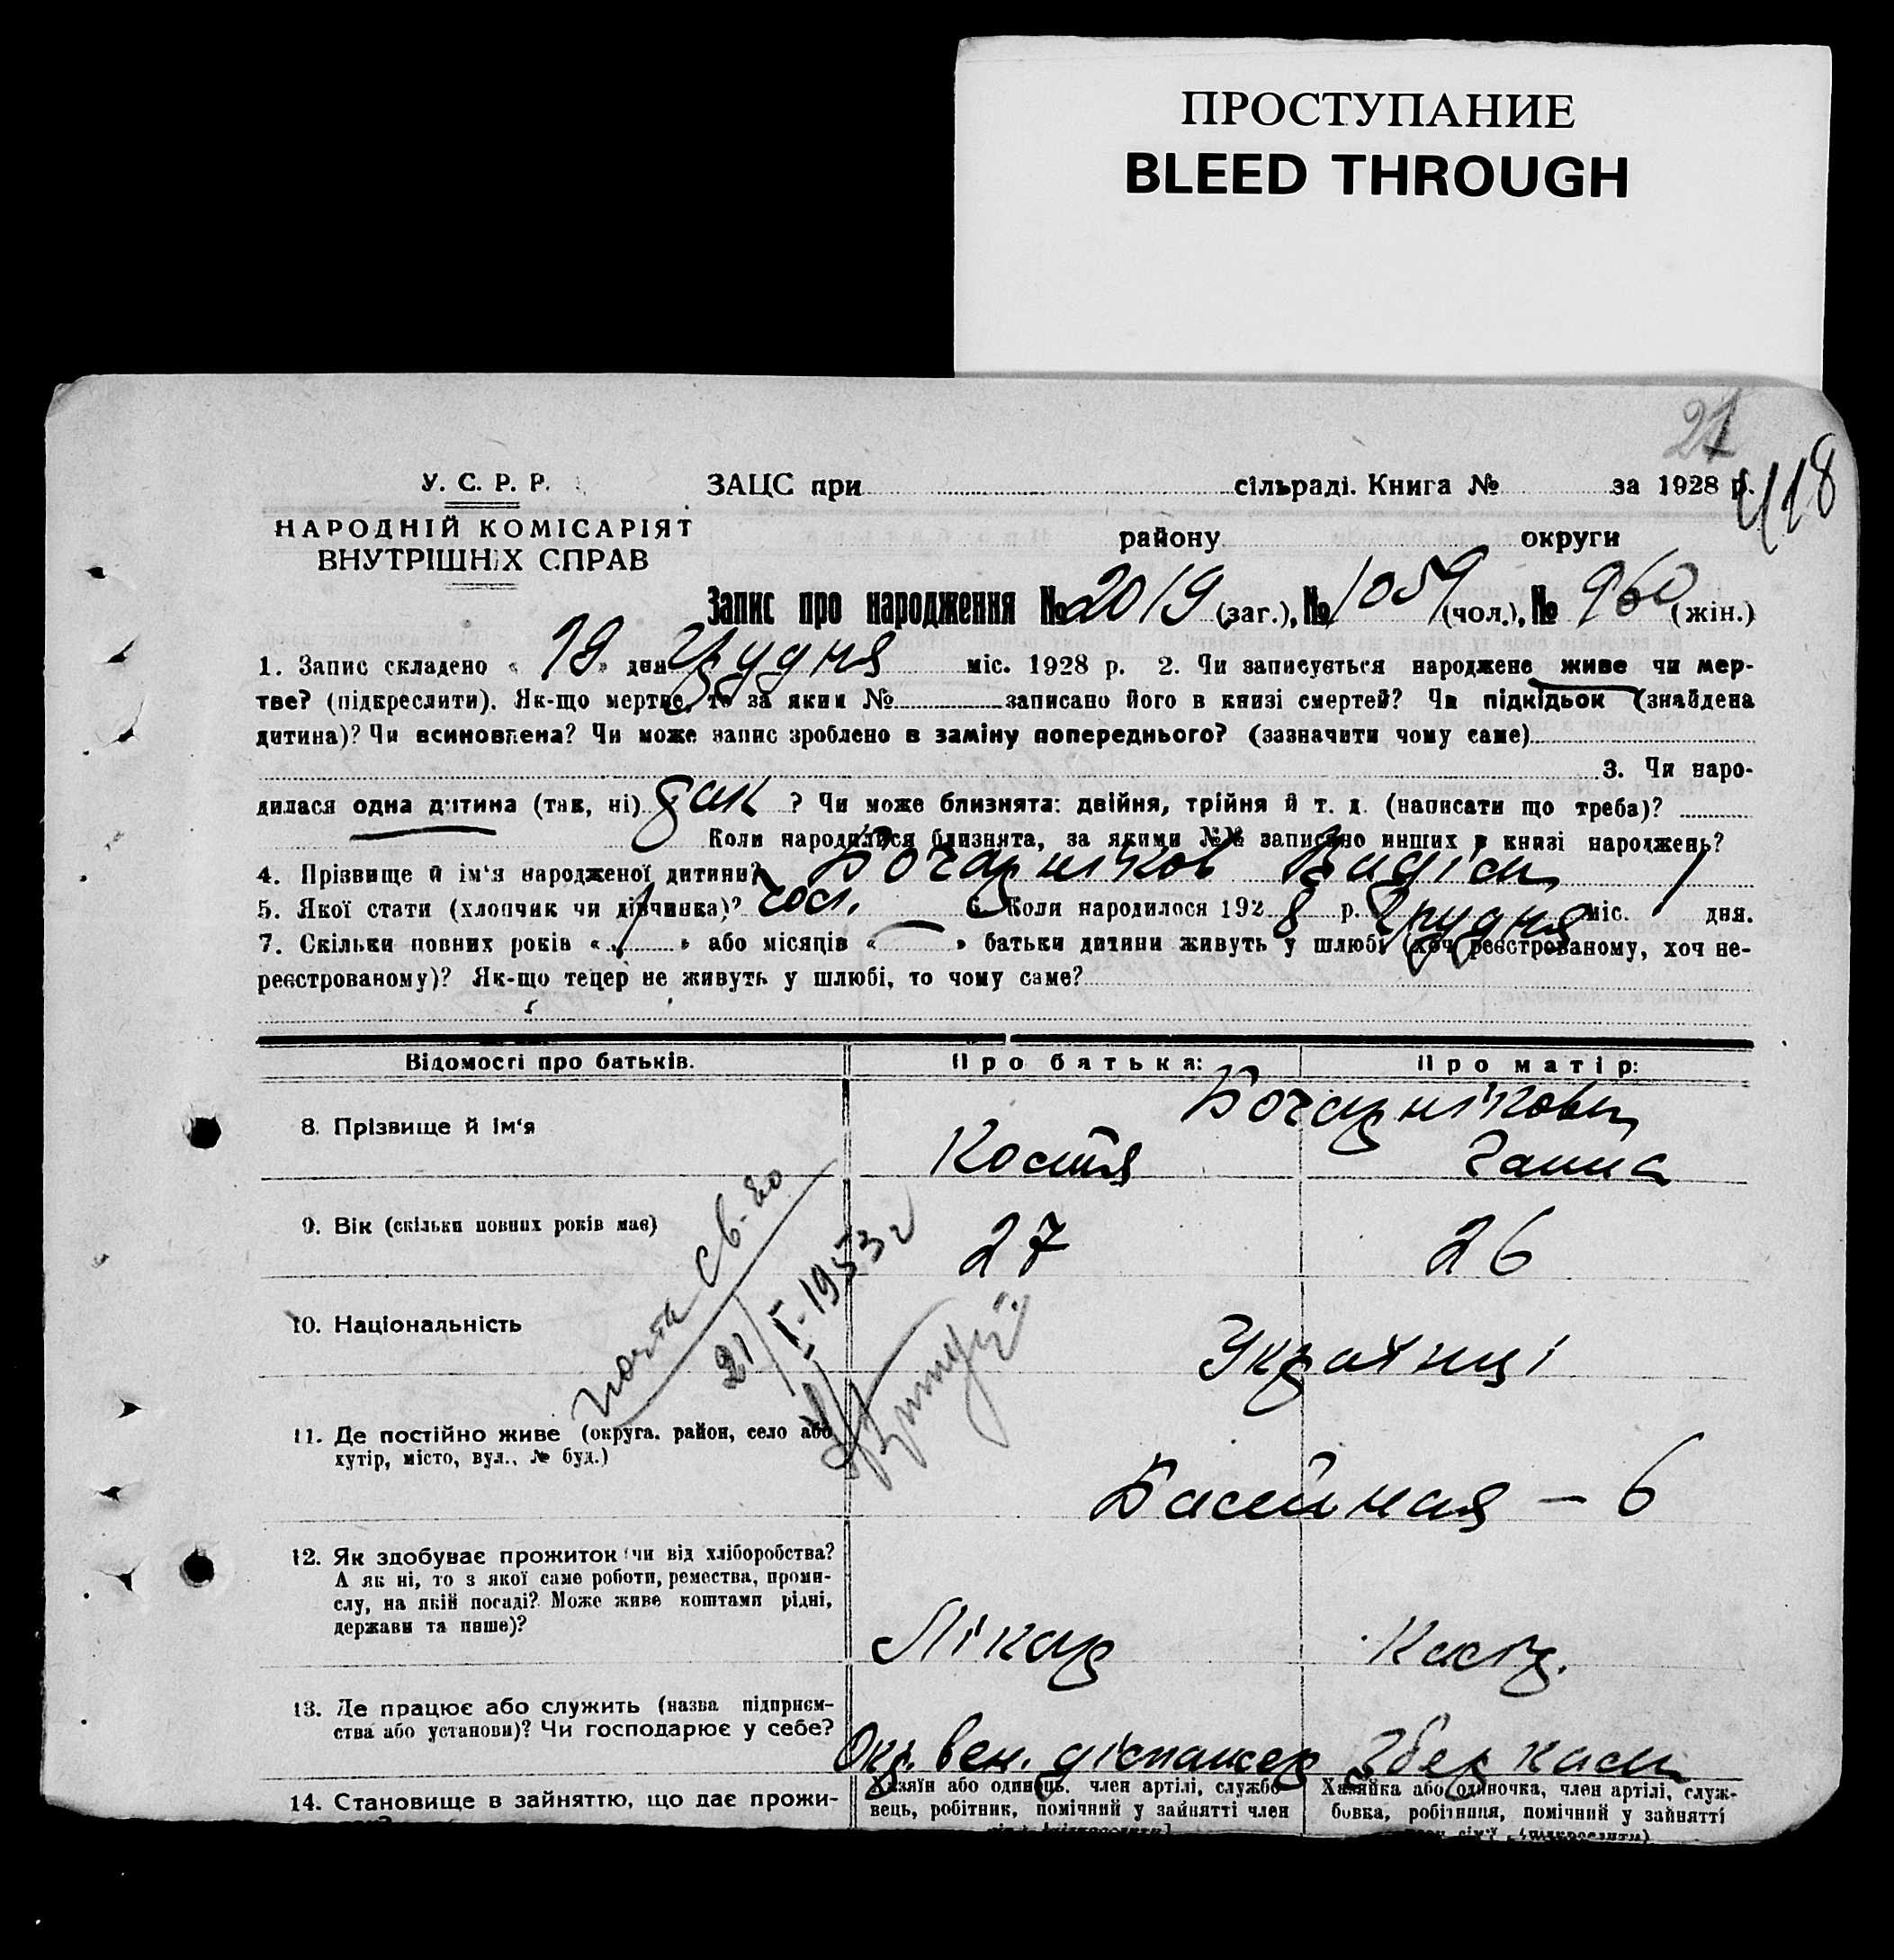 ПРОСТУПАНИЕ
BLEED THROUGH
21
418
У. С. Р. Р.
НАРОДНІЙ КОМІСАРІЯТ
ВНУТРІШНІХ СПРАВ
ЗАЦС при сільраді. Книга № за 1928 р.
району округи
Запис про народження № 2019 (заг.), № 1059 (чол.), № 960 (жін.)
1. Запис складено « 19 » дня Грудня міс. 1928 р. 2. Чи записується народжене живе чи мер-
тве? (підкреслити). Як-що мертве, то за яким № записано його в книзі смертей? Чи підкідьок (знайдена
дитина)? Чи всиновлена? Чи може запис зроблено в заміну попереднього? (зазначити чому саме)
3. Чи наро-
дилася одна дитина (так, ні) так ? Чи може близнята: двійня, трійня й т. д. (написати що треба)?
Коли народилися близнята, за якими №№ записано инших в книзі народжень?
4. Прізвище й ім'я народженої дитини? Бочарніков Вадім
5. Якої стати (хлопчик чи дівчинка)? чол. 6. Коли народилося 1928 р. Грудня міс. 1 дня.
7. Скільки повних років « 1 » або місяців « — » батьки дитини живуть у шлюбі (хоч реєстрованому, хоч не-
реєстрованому)? Як-що тепер не живуть у шлюбі, то чому саме?
Відомості про батьків. Про батька: Про матір:
8. Прізвище й ім'я
Бочарнікови
Костя Ганна
9. Вік (скільки повних років має) 27 26
10. Національність Українці
св-во
21/I-1953 г
11. Де постійно живе (округа, район, село або
хутір, місто, вул., № буд.)
Басейная — 6
12. Як здобуває прожиток (чи від хліборобства?
А як ні, то з якої саме роботи, ремества, проми-
слу, на якій посаді? Може живе коштами рідні,
держави та инше)?
Лікар Касір.
13. Де працює або служить (назва підприєм-
ства або установи)? Чи господарює у себе?
Окр. вен. діспансер Збер каси
14. Становище в зайняттю, що дає прожи-
Хазяїн або одинець, член артілі, службо-
вець, робітник, помічний у зайнятті член
Хазяйка або одиночка, член артілі, служ-
бовка, робітниця, помічний у зайнятті